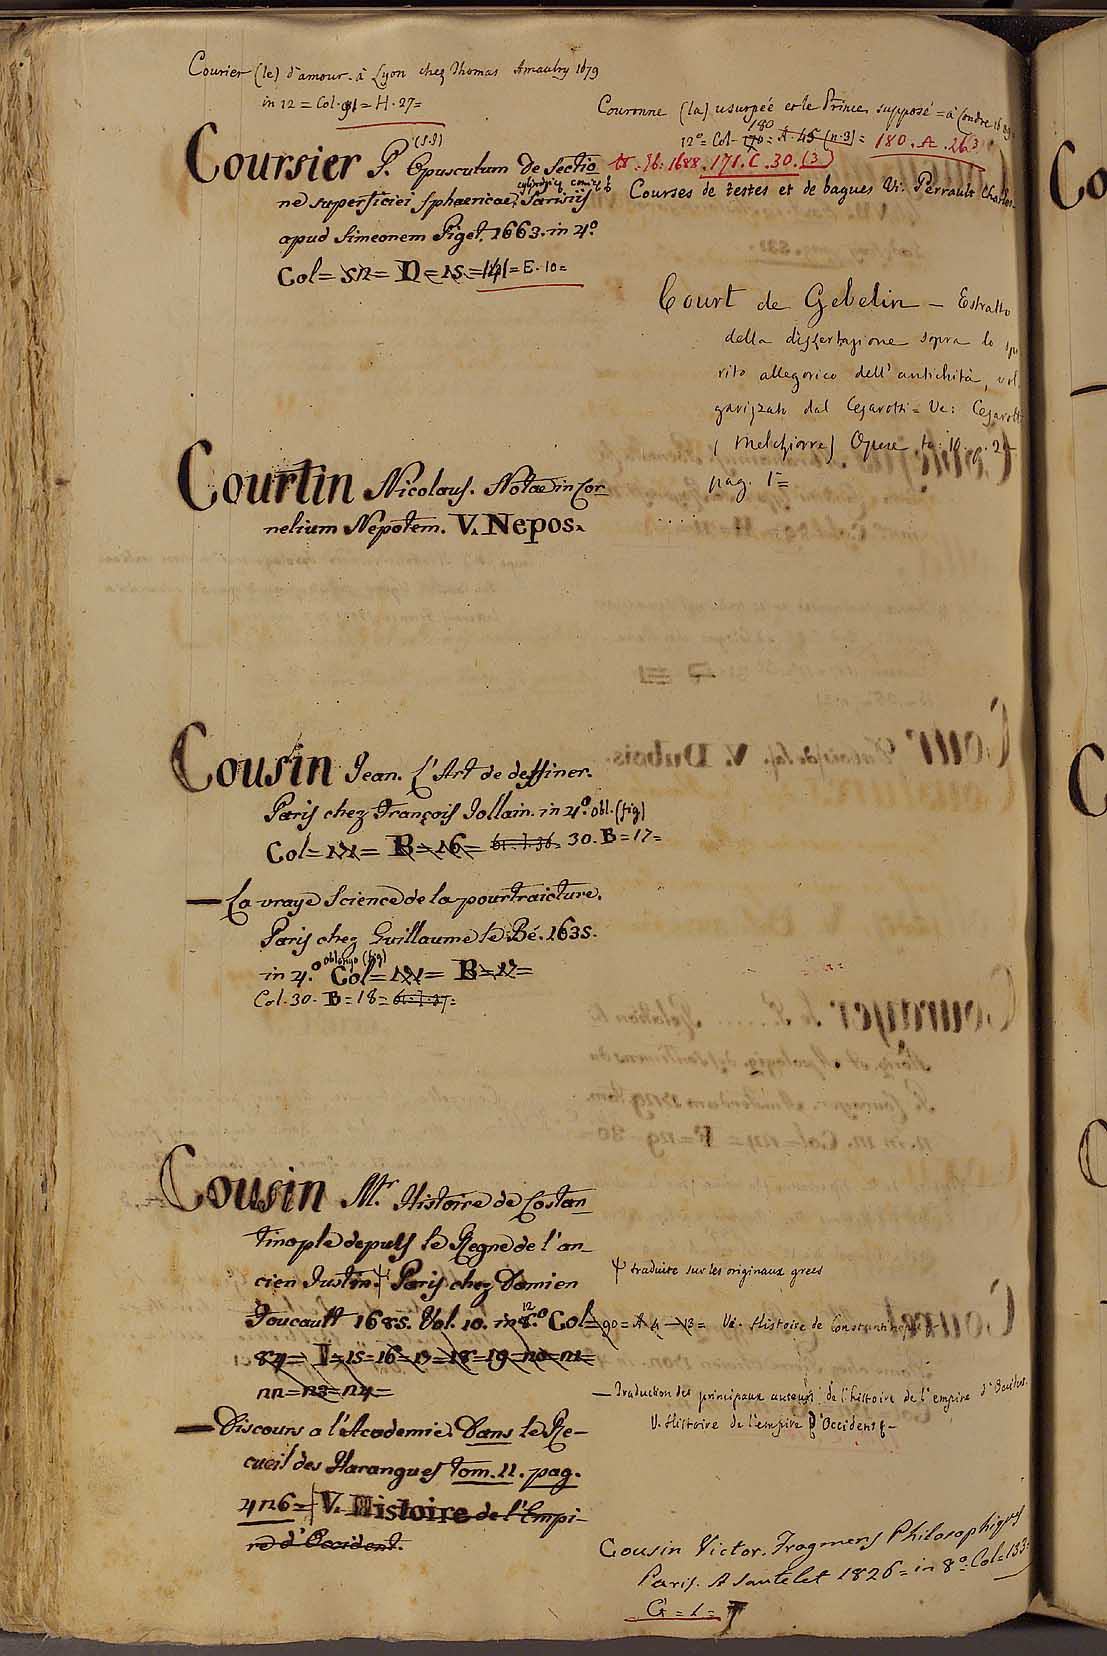 Courier (le) d'amour. à Lyon chez Thomas Amaulry 1679
in 12 = Col. 91 = H. 27 =
Coursier P. (S.J) Opusculum de Sectio
ne superficiei sphaericae, cylindricę conicę Parisiis
apud Simeonem Piget. 1663. in 4.º
Col = 52 = D = 15 = 141 = E. 10 =
Courtin Nicolaus. Notae in Cor
nelium Nepotem. V. Nepos.
Cousin Jean. L'Art de dessiner.
Paris chez François Jollain. in 4.º obl. (fig)
Col = 121 = B = 16 = 30. B = 17 =
— La vraye Science de la pourtraicture.
Paris chez Guillaume le Bé. 1635.
in 4.º oblongo (fig) Col = 121 = B = 17 =
Col. 30. B = 18 =
Cousin Mr. Histoire de Costan
tinople depuis le Regne de l'an_
cien Justin. Ψ Paris chez Damien
Foucault 1685. Vol. 10. in 8.º 12 Col =
84 = I = 15 = 16 = 17 = 18 = 19 = 20 = 21 =
22 = 23 = 24 =
— Discours a l'Academie. Dans le Re-
cueil des Harangues tom. II. pag.
426 = V. Histoire de l'Empi-
re d'Occident.
Couronne (la) usurpée et le Prince supposé = à Londre 1689
12º = Col. 170 = 180 A. 45 (n. 3) = 180. A. 26 3
1688. 171. C. 30. (3)
Courses de testes et de bagues Vi. Perrault Charles
Court de Gebelin — Estratto
della dissertazione sopra lo spi
rito allegorico dell' antichità, vol
garizzato dal Cesarotti = Ve: Cesarotti
(Melchiorre) Opere to: 10
pag. 1 =
Ψ traduite sur les originaux grecs
90 = A 4 — 13 = Ve. Histoire de Constantinople
— Traduction des principaux auteurs de l'histoire de l'empire d'Occident.
V. Histoire de l'empire d'Occident —
Cousin Victor. Fragmens Philosophiques
Paris. A Sautelet 1826 = in 8.º Col = 133
G = 1 = 7